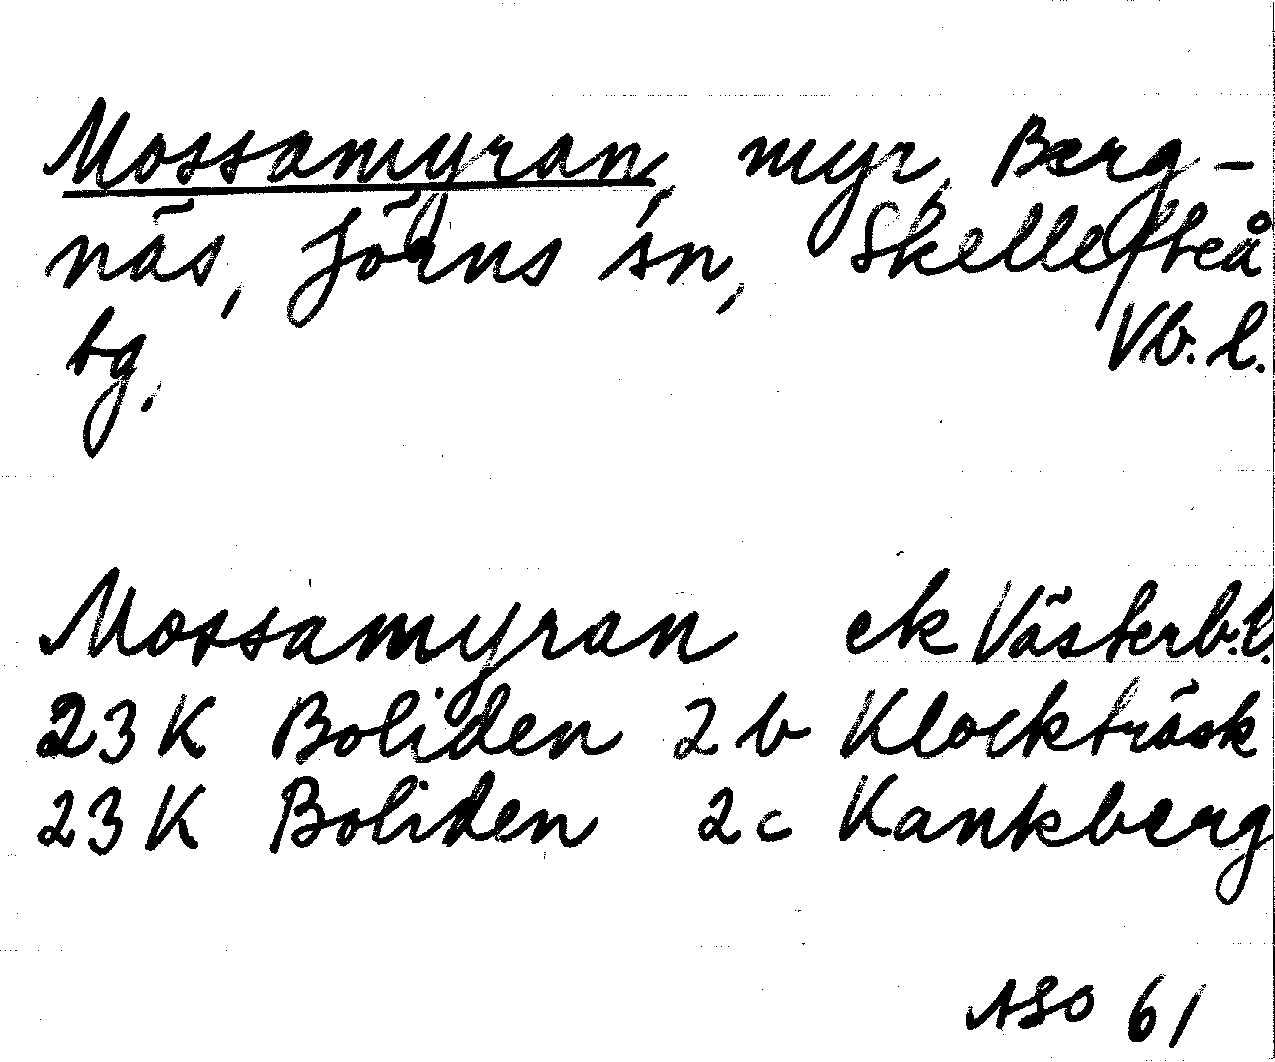 Mossamyran, myr, Berg-
näs, Jörns sn, Skellefteå
tg. Vb. l.
Mossamyran ek Västerb. l.
23 K Boliden 2 b Klockträsk
23 K Boliden 2 c Kankberg
ASO 61